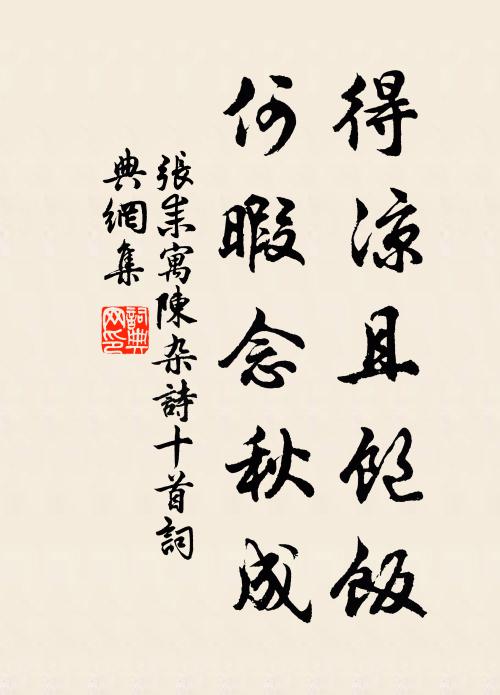 得凉且饱饭
何暇念秋成
張耒寓陳杂詩十首詞
典網集
詞典
网印